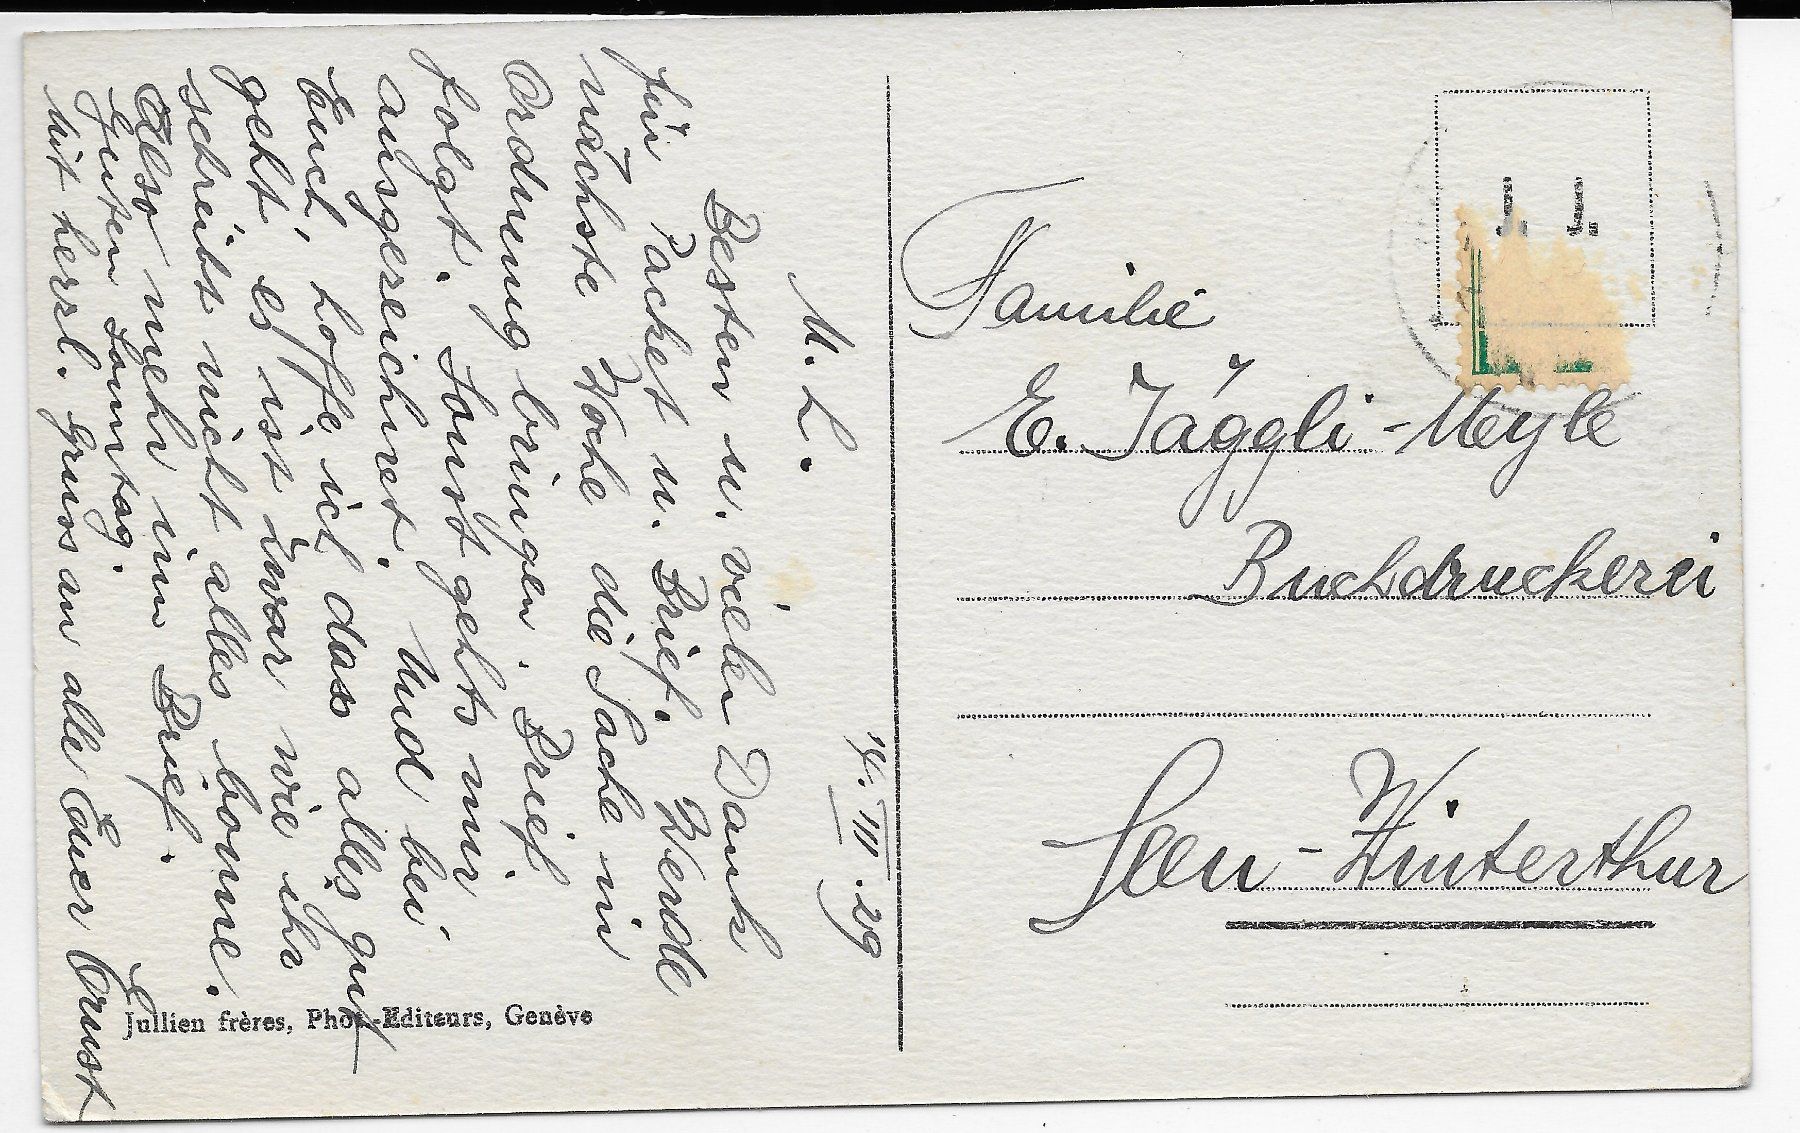 14. III. 29
M. L.
Besten u. vielen Dank
für Packet u. Brief. Werde
nächste Woche die Sache in
Ordnung bringen. Brief
folgt. Sonst gehts mir
ausgezeichnet. Und bei
Euch, hoffe ich das alles gut
geht, es ist zwar wie ihr
schreibt nicht alles bonne.
Also mehr im Brief.
Guten Sonntag.
Mit herzl. Gruss an alle Euer Ernst
Jullien frères, Phot.-Editeurs, Genève
J. J.
Familie
E. Jäggli-Meyle
Buchdruckerei
Seen-Winterthur